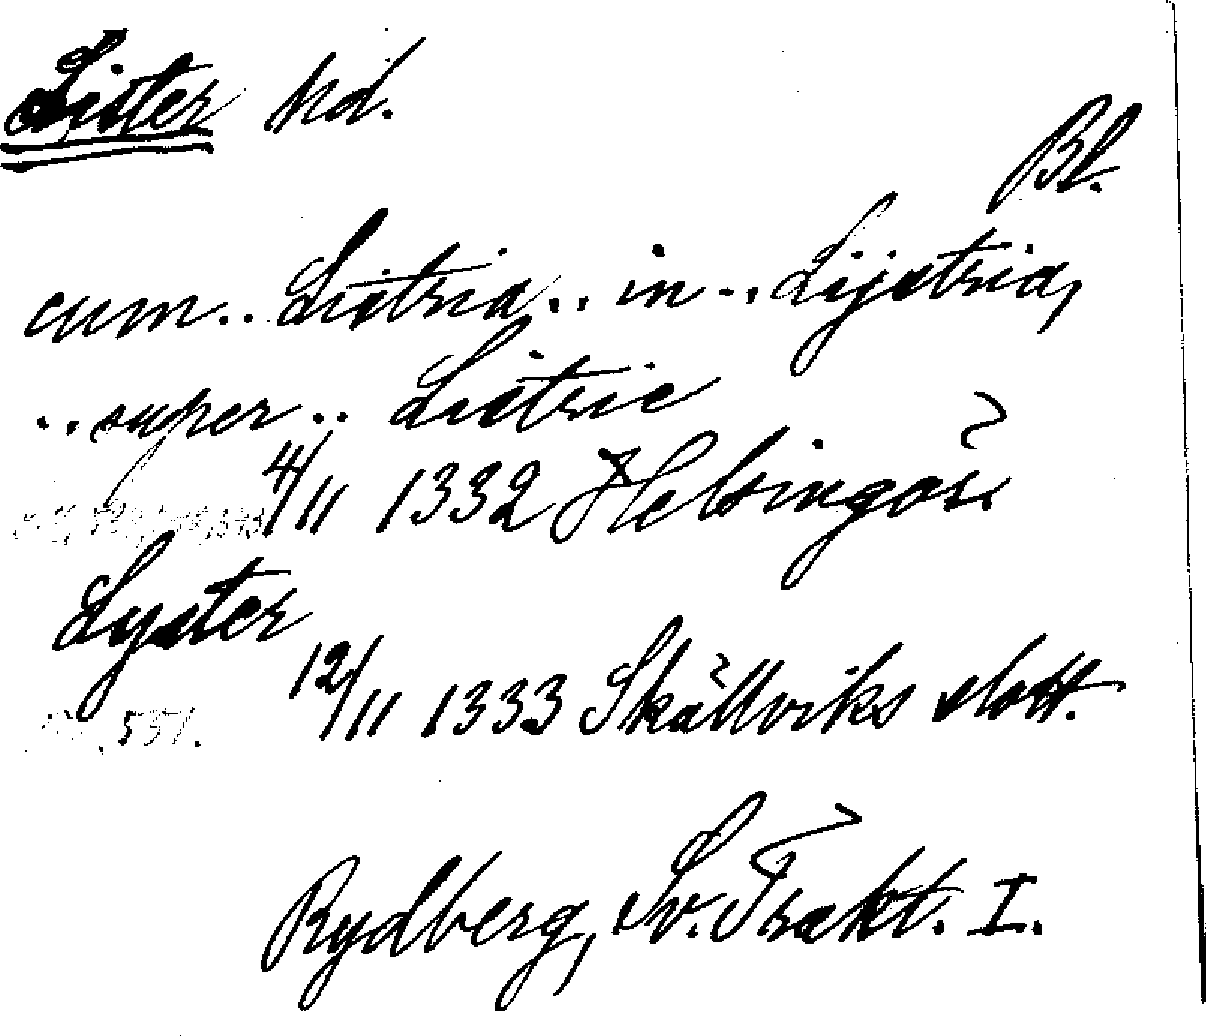 Lister hd.
Bl.
cum.. Listria.. in.. Lijstria,
..super.. Listrie
4/11 1332 Helsingör.
Lyster
12/11 1333 Skällviks slott.
531.
Rydberg, Sv. Trakt. I.